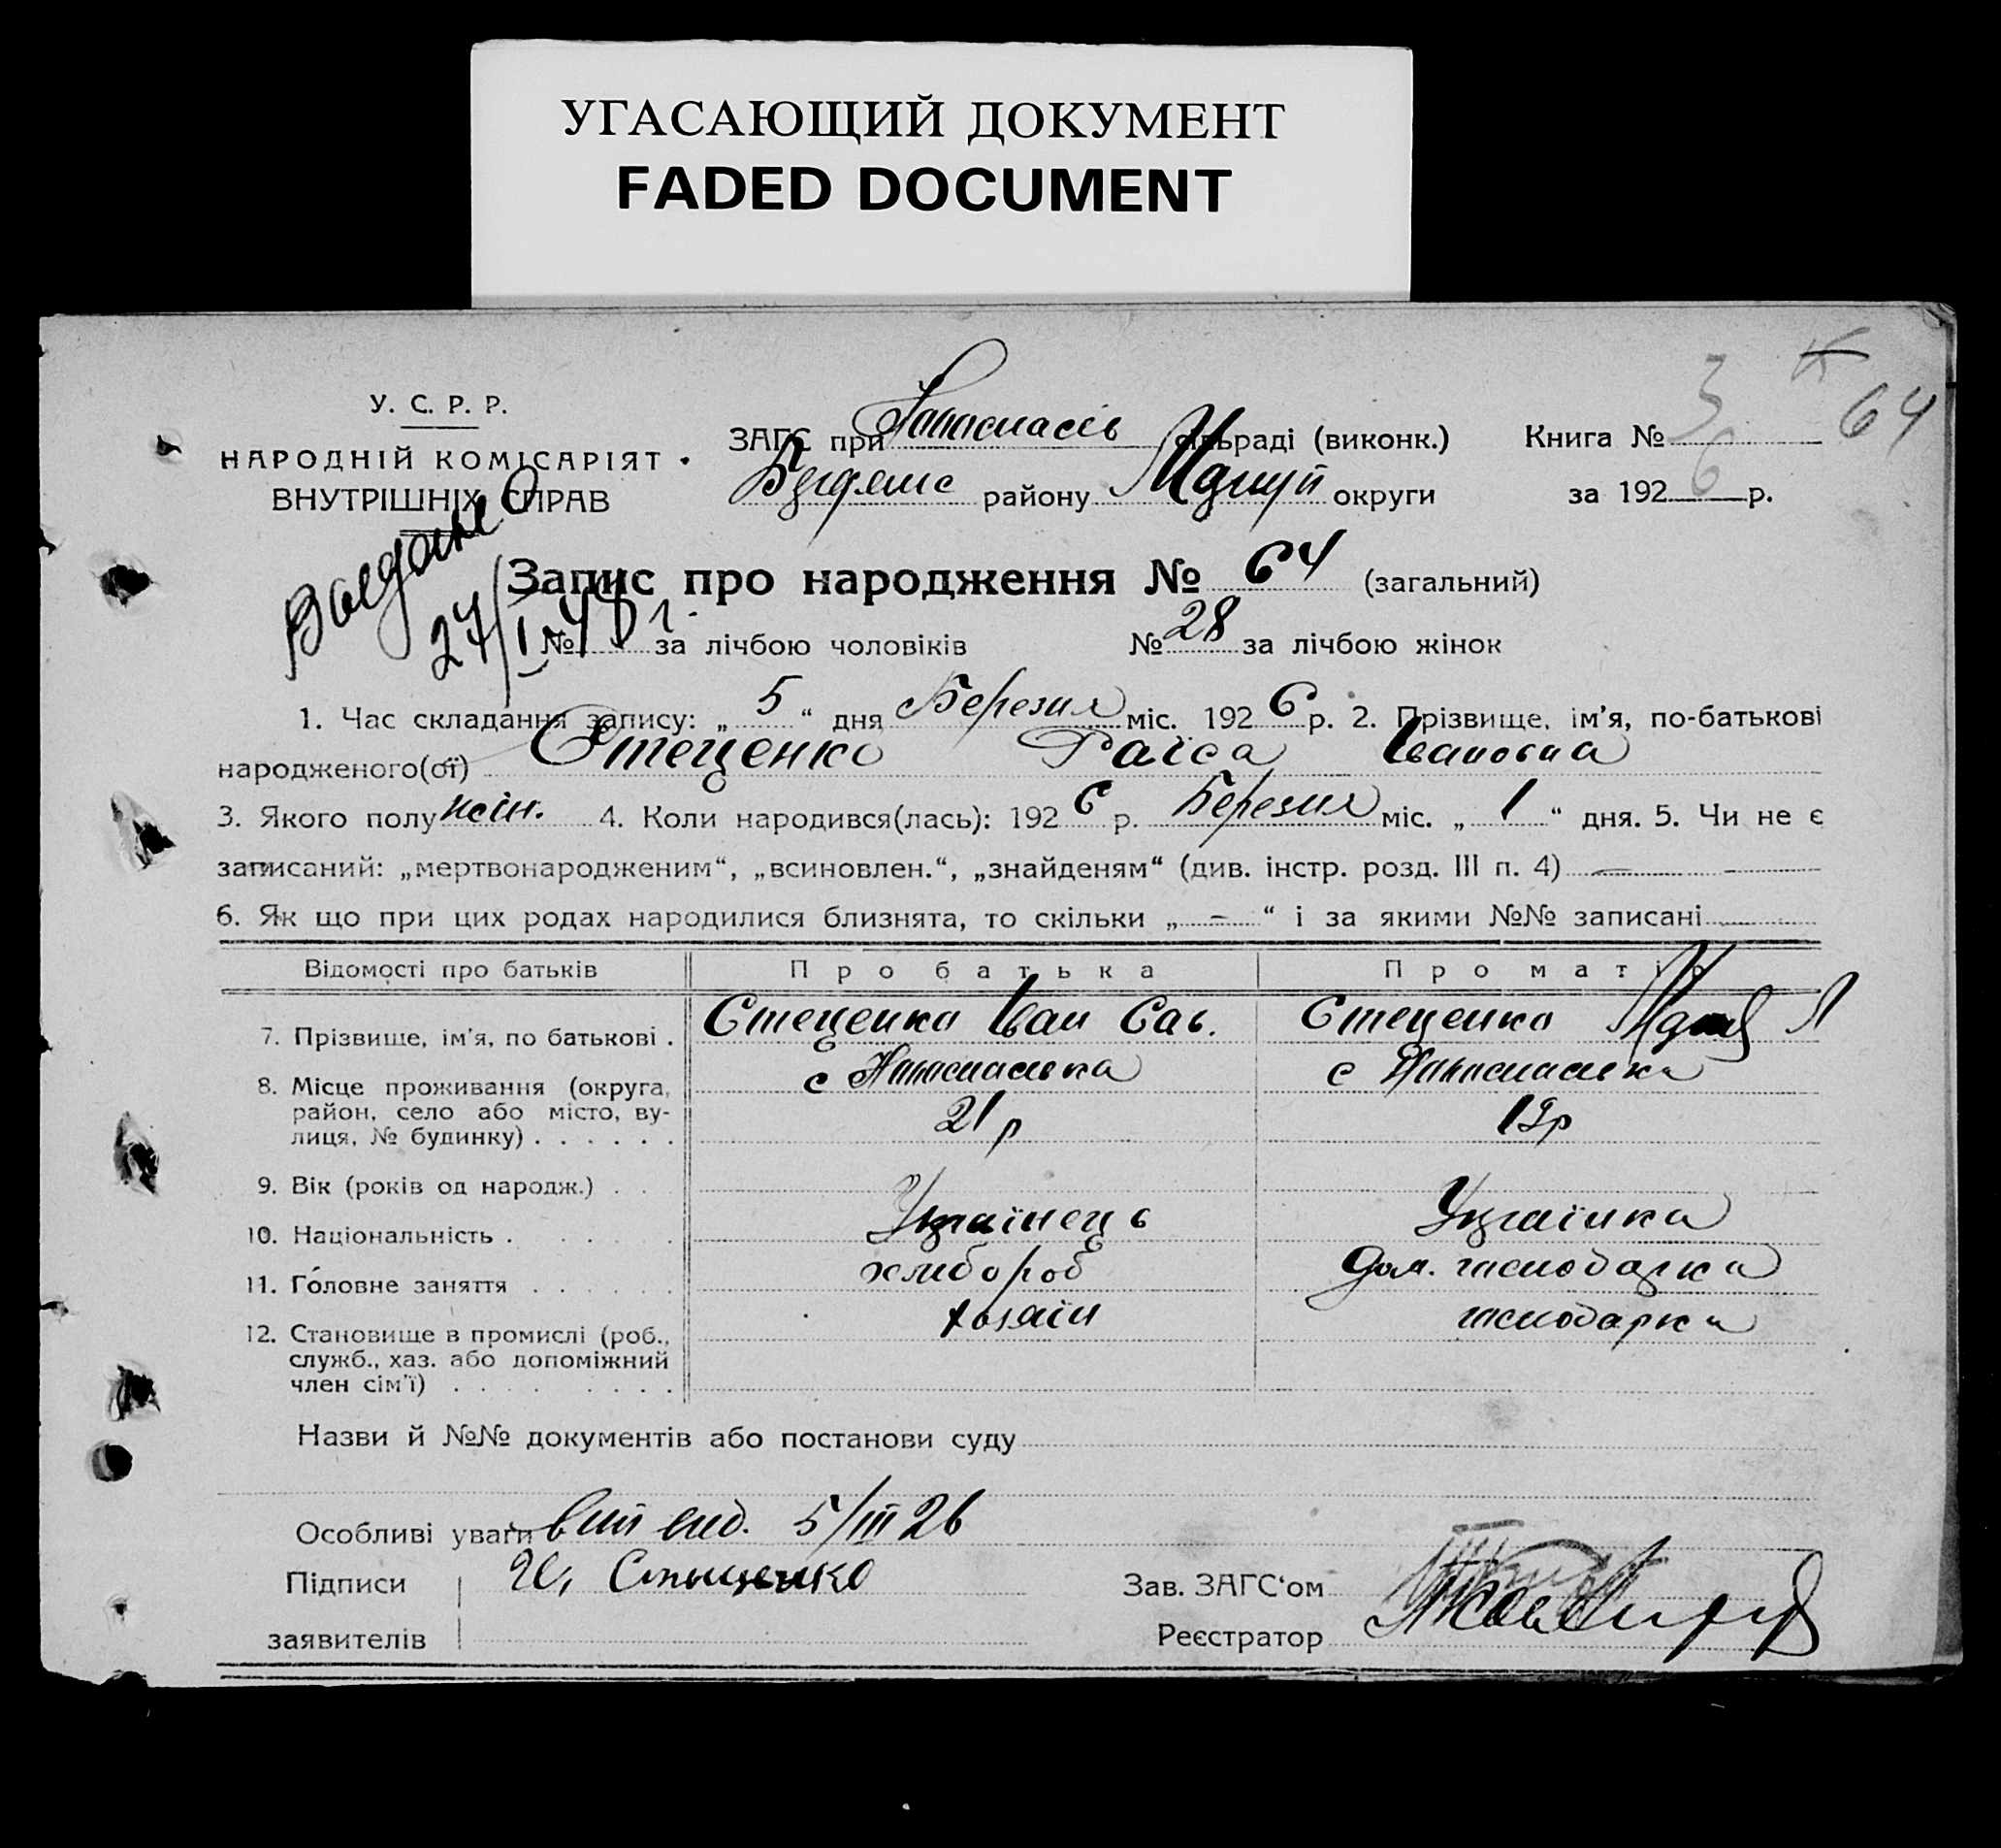 УГАСАЮЩИЙ ДОКУМЕНТ
FADED DOCUMENT
К
64
У. С. Р. Р.
НАРОДНІЙ КОМІСАРІЯТ
ВНУТРІШНІХ СПРАВ
ЗАГС при сільраді (виконк.)
району округи
Книга № 3
за 1926 р.
27/I-48 г.
Запис про народження № 64 (загальний)
№ за лічбою чоловіків № 28 за лічбою жінок
1. Час складання запису: „ 5 “ дня Березня міс. 1926 р. 2. Прізвище, ім'я, по-батькові
народженого(ої) Стеценко Раїса Івановна
3. Якого полу жін. 4. Коли народився(лась): 1926 р. Березня міс. „ 1 “ дня. 5. Чи не є
записаний: „мертвонародженим“, „всиновлен.“, „знайденям“ (див. інстр. розд. III п. 4) —
6. Як що при цих родах народилися близнята, то скільки „ – “ і за якими №№ записані
Відомості про батьків Про батька Про матір
7. Прізвище, ім'я, по батькові . Стеценко Іван Сав. Стеценко
8. Місце проживання (округа, район, село або місто, вулиця, № будинку) . . . . . . с с
21 р 19 р
9. Вік (років од народж.) . .
10. Національність . . . . . Українець Українка
11. Головне заняття . . . . . . хлибороб дом. господарка
12. Становище в промислі (роб., служб., хаз. або допоміжний член сім'ї) . . . . . . . . . хозяїн господарка
Назви й №№ документів або постанови суду
Особливі уваги 5/III 26
Підписи Стеценко
заявителів
Зав. ЗАГС‘ом
Реєстратор